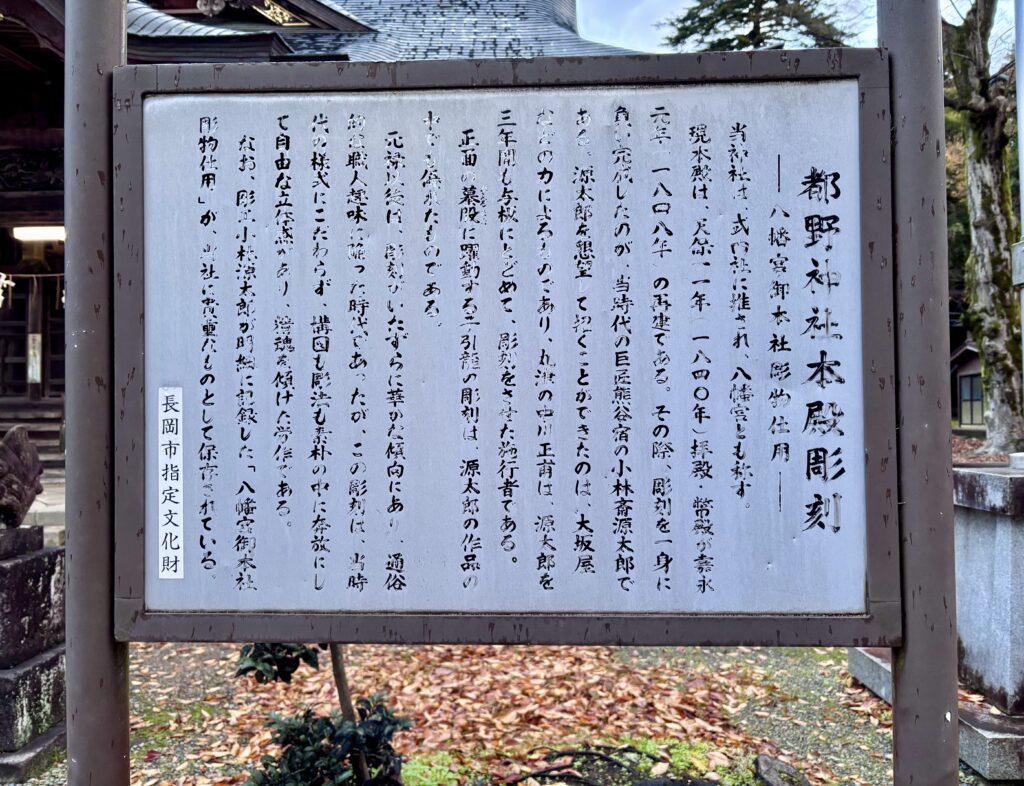 都野神社本殿彫刻
――八幡宮御本社彫物仕用――
当神社は、式内社に推され、八幡宮とも称す。
現本殿は、天保一一年(一八四〇年)拝殿、幣殿が嘉永
元年(一八四八年)の再建である。その際、彫刻を一身に
負い完成したのが、当時代の巨匠熊谷宿の小林斎源太郎で
ある。源太郎を懇望して招くことができたのは、大坂屋
などの力によるものであり、の中川正甫は、源太郎を
三年間も与板にとどめて、彫刻をさせた施行者である。
正面の蟇股に躍動する子引龍の彫刻は、源太郎の作品の
中でも優れたものである。
元禄以後は、彫刻がいたずらに華かな傾向にあり、通俗
的な職人趣味に陥った時代であったが、この彫刻は、当時
代の様式にこだわらず、構図も彫法も素朴の中に奔放にし
て自由な立体感があり、精魂を傾けた労作である。
なお、彫工小林源太郎が明細に記録した「八幡宮御本社
彫物仕用」が、当社に貴重なものとして保存されている。
長岡市指定文化財